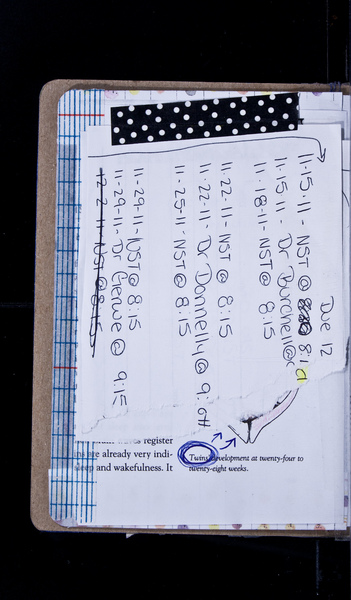 Due 12
11-15-11 - NST @ 8:1
11-15-11 - Dr Burchell @
11-18-11 - NST @ 8:15
11-22-11 - NST @ 8:15
11-22-11 - Dr Donnelly @ 9:
11-25-11 - NST @ 8:15
11-29-11 - NST @ 8:15
11-29-11 - Dr @ 9:15
12-2-11 - NST @ 8:15
register
are already very indi-
and wakefulness. It
Twins development at twenty-four to
twenty-eight weeks.